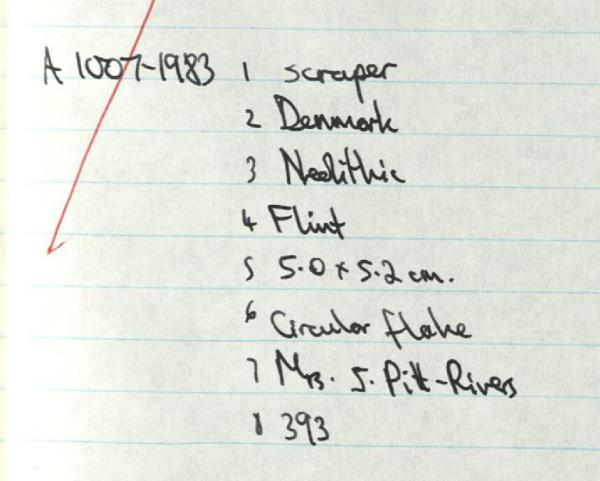 A 1007-1983 1 scraper
2 Denmark
3 Neolithic
4 Flint
5 5.0 x 5.2 cm.
6 Circular flake
7 Mrs. S. Pitt-Rivers
8 393